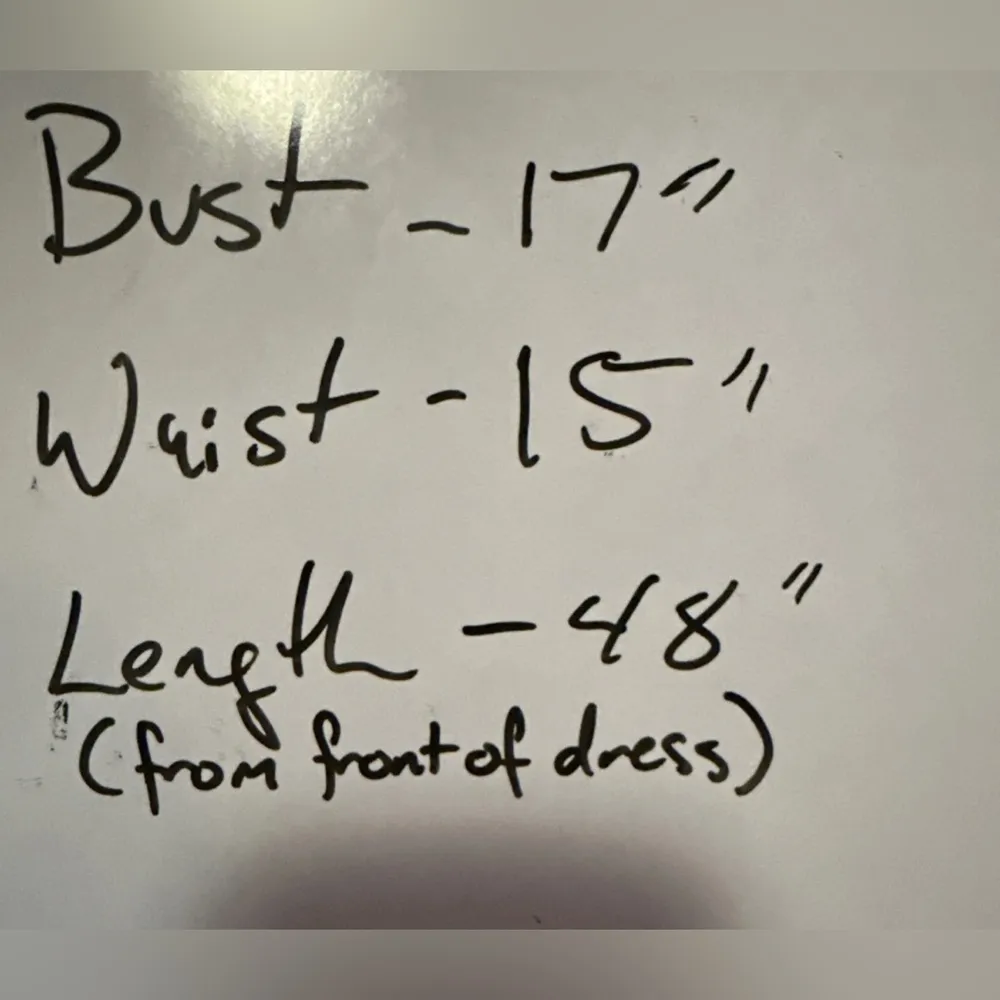 Bust - 17"
Waist - 15"
Length - 48"
(from front of dress)